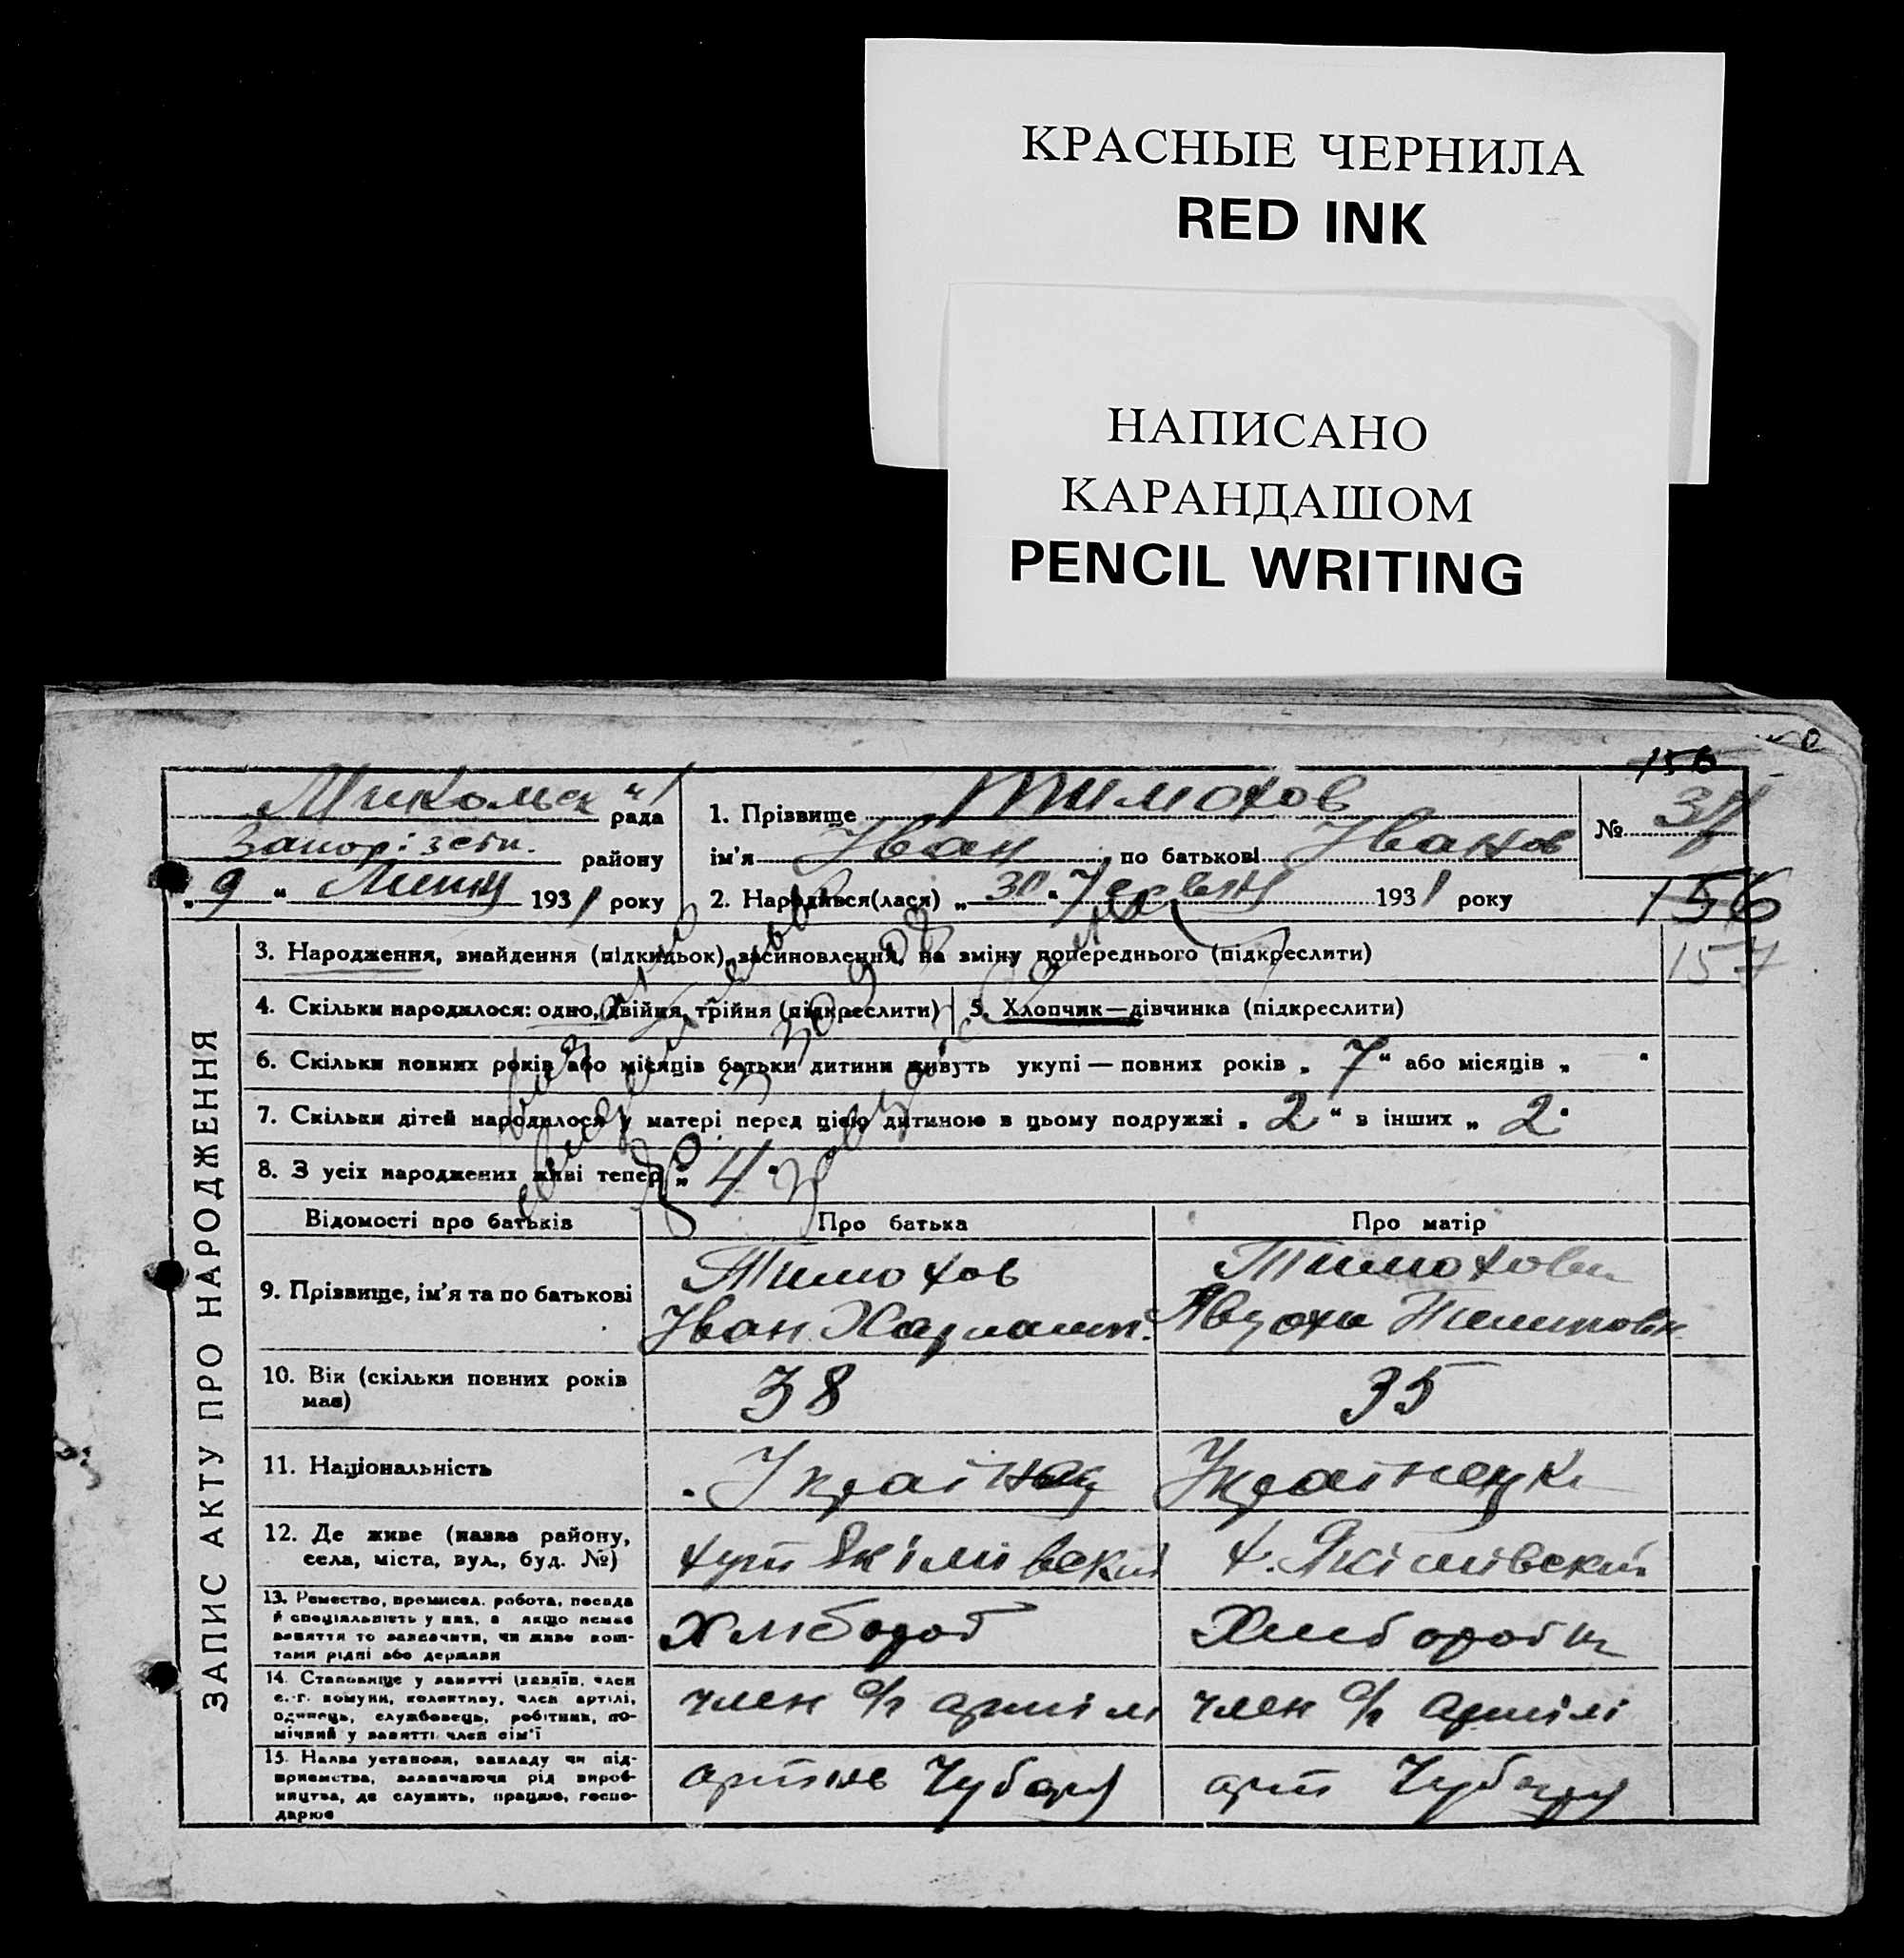 КРАСНЫЕ ЧЕРНИЛА
RED INK
НАПИСАНО
КАРАНДАШОМ
PENCIL WRITING
156
рада
Запорізьк. району
„ 9 “ Липня 1931 року
1. Прізвище Тимохов
ім'я Іван по батькові Іванов
№ 37
2. Народився(лася) „ 30 “ Червня 1931 року
156
157
ЗАПИС АКТУ ПРО НАРОДЖЕННЯ
3. Народження, знайдення (підкидьок), всиновлення, на зміну попереднього (підкреслити)
4. Скільки народилося: одно, двійня, трійня (підкреслити)
5. Хлопчик—дівчинка (підкреслити)
6. Скільки повних років або місяців батьки дитини живуть укупі — повних років „ 7 “ або місяців „ “
7. Скільки дітей народилося у матері перед цією дитиною в цьому подружжі „ 2 “ в інших „ 2 “
8. З усіх народжених живі тепер „ 4 “
Відомості про батьків
Про батька
Про матір
9. Прізвище, ім'я та по батькові
Тимохов
Іван
Тимохова
10. Вік (скільки повних років має)
38
35
11. Національність
Українець
Українка
12. Де живе (назва району, села, міста, вул., буд. №)
хут Якімівский
х. Якімівский
13. Ремество, промисел, робота, посада й спеціальність у них, а якщо немає заняття то зазначити, чи живе коштами рідні або держави
Хлібороб
14. Становище у занятті (хазяїн, член с.-г. комуни, колективу, член артілі, одинець, службовець, робітник, помічний у занятті член сім'ї
член с/г артілі
член с/г артілі
15. Назва установи, закладу чи підприємства, зазначаючи рід виробництва, де служить, працює, господарює
артіль Чубаря
арт Чубаря